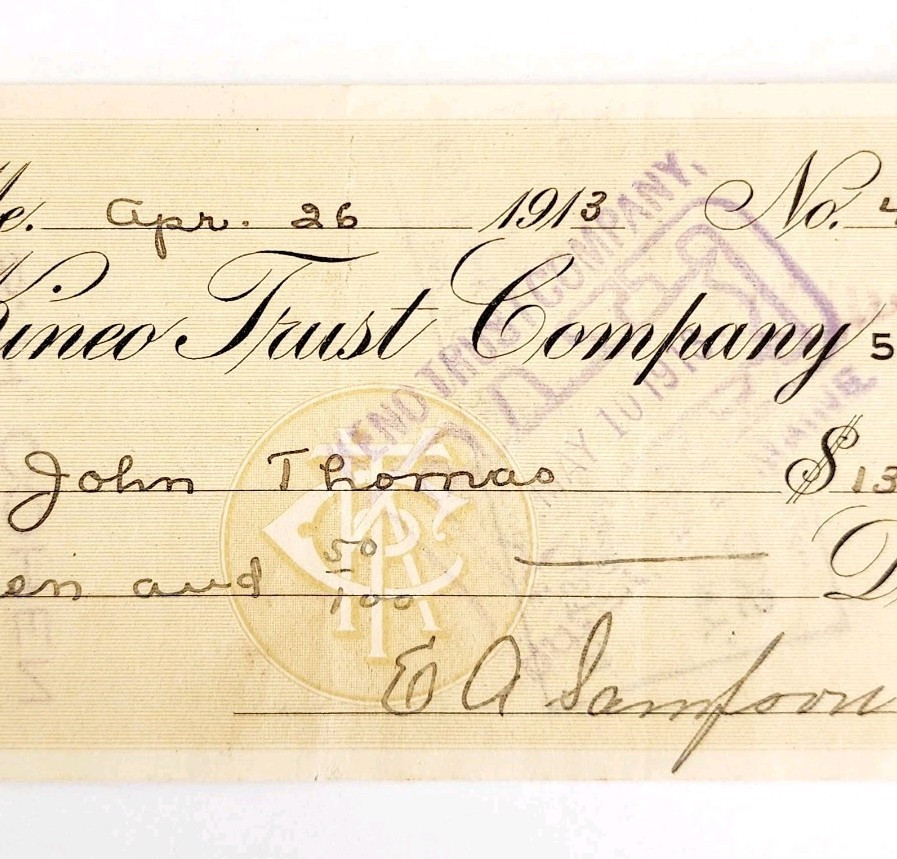 Me. Apr. 26 1913 No. 4
Kineo Trust Company 5
John Thomas $13
en and 50/100 D
E A Sampson
KINEO TRUST COMPANY,
PAID
MAY 10 191
MAINE.